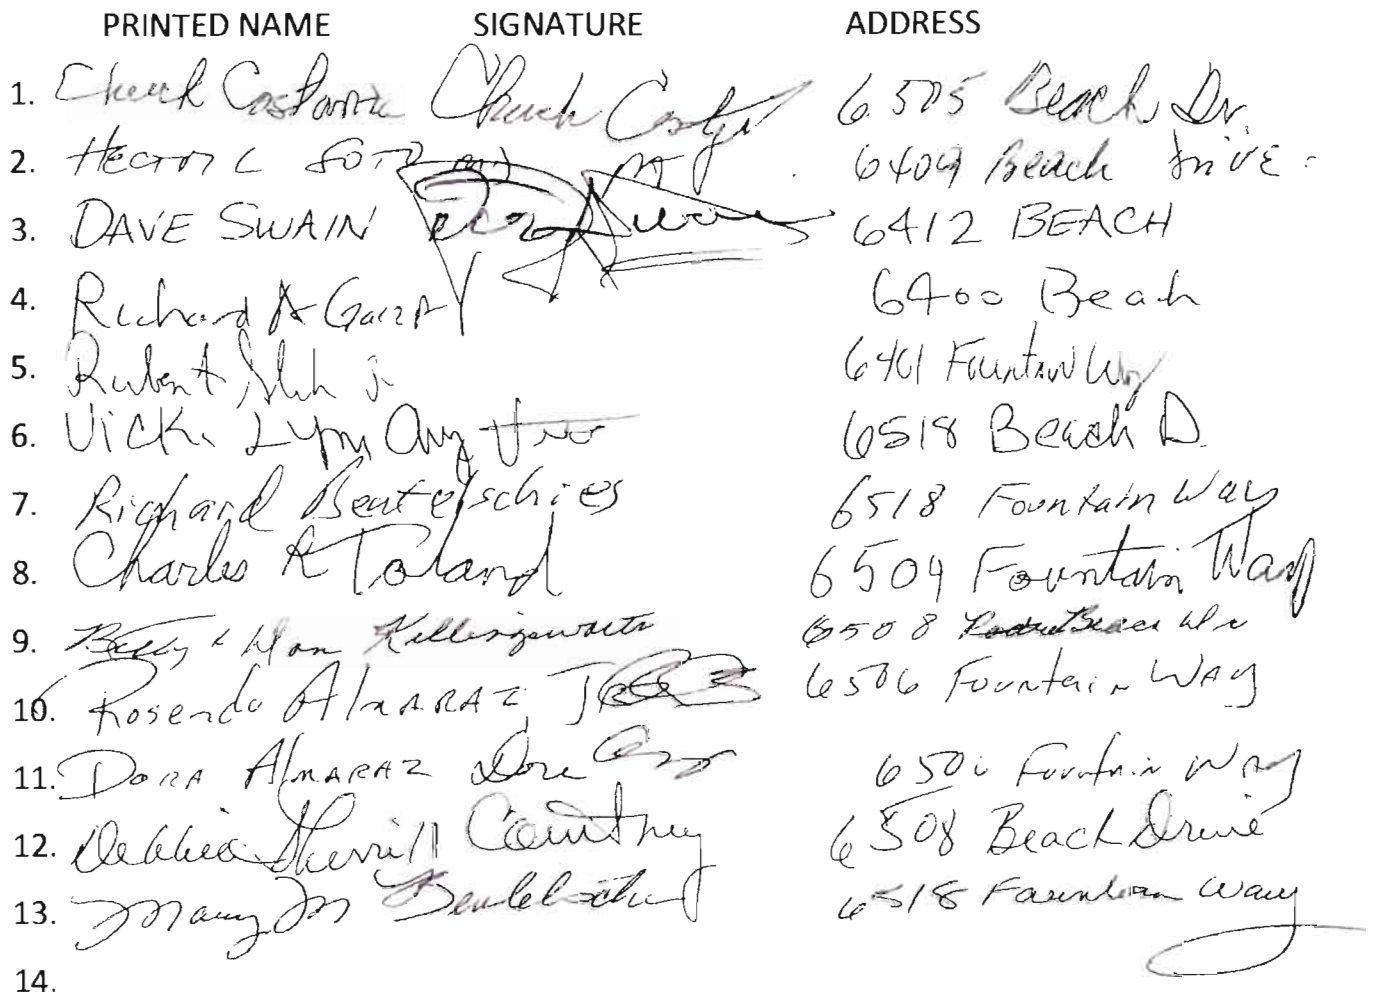 PRINTED NAME SIGNATURE ADDRESS
1. Chuck Chuck 6505 Beach Dr.
2. Hector L Soto 6409 Beach Drive
3. DAVE SWAIN 6412 BEACH
4. Richard A Garza 6400 Beach
5. Fountain Way
6. Vicki Lynn 6518 Beach D.
7. Richard Beutelschies 6518 Fountain Way
8. Charles R Toland 6504 Fountain Way
9. Betty & Don Killingsworth 6508 Beach
10. Rosendo AlmARAZ Jr 6506 Fountain WAy
11. DORA AlmARAZ Dora 6506 Fountain WAy
12. Debbie Sherrill Courtney 6508 Beach Drive
13. Mary M 6518 Fountain Way
14.